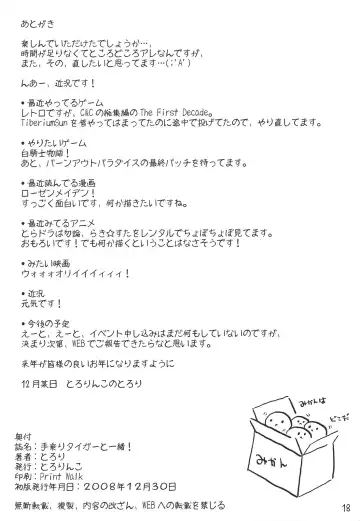 あとがき
楽しんでいただけたでしょうか…、
時間が足りなくてところどころアレなんですが、
また、その、直したいと思ってます…(;'A`)
んあー、近況です！
•最近やってるゲーム
レトロですが、C&Cの総集編のThe First Decade。
TiberiumSunを昔やってはまってたのに途中で投げてたので、やり直してます。
•やりたいゲーム
白騎士物語！
あと、バーンアウトパラダイスの最終パッチを待ってます。
•最近読んでる漫画
ローゼンメイデン！
すっごく面白いです、何か描きたいですね。
•最近みてるアニメ
とらドラは勿論、らき☆すたをレンタルでちょぼちょぼ見てます。
おもろいです！でも何か描くということはなさそうです！
•みたい映画
ウォォォオリイイイィィィ！
•近況
元気です！
•今後の予定
えーと、えーと、イベント申し込みはまだ何もしていないのですが、
決まり次第、WEBでご報告できたらなと思います。
来年が皆様の良いお年になりますように
12月某日　とろりんこのとろり
みかんは
どこだ
みかん
奥付
誌名：手乗りタイガーと一緒！
著者：とろり
発行：とろりんこ
印刷：Print Walk
初版発行年月日：2008年12月30日
無断転載、複製、内容の改ざん、WEBへの転載を禁じる
18